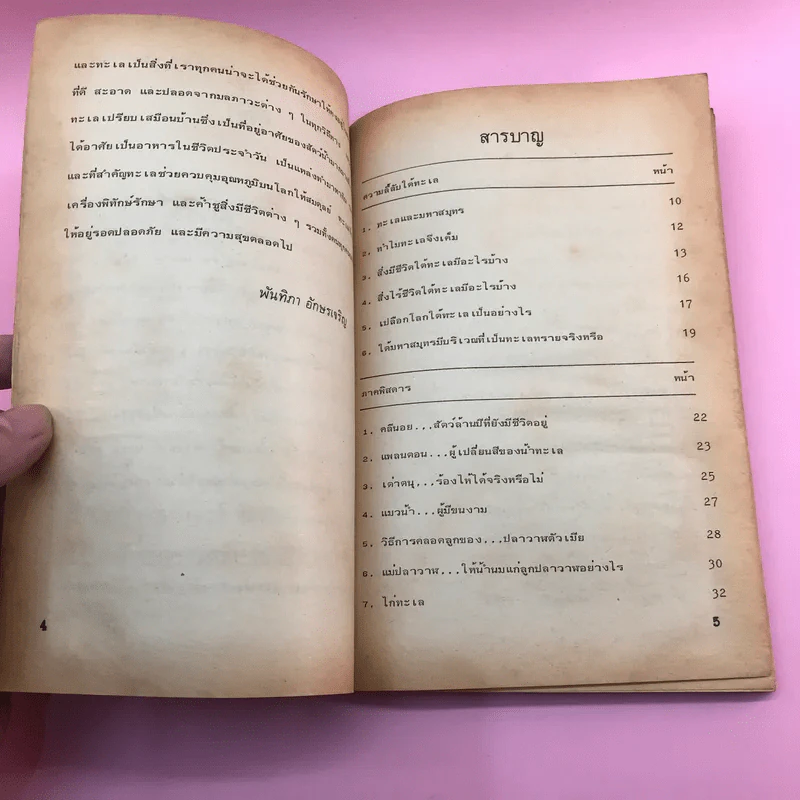 และทะเลเป็นสิ่งที่เราทุกคนน่าจะได้ช่วยกันรักษาให้
ที่ดี สะอาด และปลอดจากมลภาวะต่าง ๆ ในทุกวิถีทาง
ทะเลเปรียบเสมือนบ้านซึ่งเป็นที่อยู่อาศัยของสัตว์น้ำ
ได้อาศัยเป็นอาหารในชีวิตประจำวัน เป็นแหล่งทำมาหากิน
และที่สำคัญทะเลช่วยควบคุมอุณหภูมิบนโลกให้สมดุลย์
เครื่องพิทักษ์รักษา และค้ำชูสิ่งมีชีวิตต่าง ๆ รวมทั้ง
ให้อยู่รอดปลอดภัย และมีความสุขตลอดไป
พันทิภา อักษรเจริญ
4
สารบาญ
ความลี้ลับใต้ทะเล หน้า
1. ทะเลและมหาสมุทร 10
2. ทำไมทะเลจึงเค็ม 12
3. สิ่งมีชีวิตใต้ทะเลมีอะไรบ้าง 13
4. สิ่งไร้ชีวิตใต้ทะเลมีอะไรบ้าง 16
5. เปลือกโลกใต้ทะเลเป็นอย่างไร 17
6. ใต้มหาสมุทรมีบริเวณที่เป็นทะเลทรายจริงหรือ 19
ภาคพิสดาร หน้า
1. คลีนอย...สัตว์ล้านปีที่ยังมีชีวิตอยู่ 22
2. แพลนตอน...ผู้เปลี่ยนสีของน้ำทะเล 23
3. เต่าตนุ...ร้องไห้ได้จริงหรือไม่ 25
4. แมวน้ำ...ผู้มีขนงาม 27
5. วิธีการคลอดลูกของ...ปลาวาฬตัวเมีย 28
6. แม่ปลาวาฬ...ให้น้ำนมแก่ลูกปลาวาฬอย่างไร 30
7. ไก่ทะเล 32
5